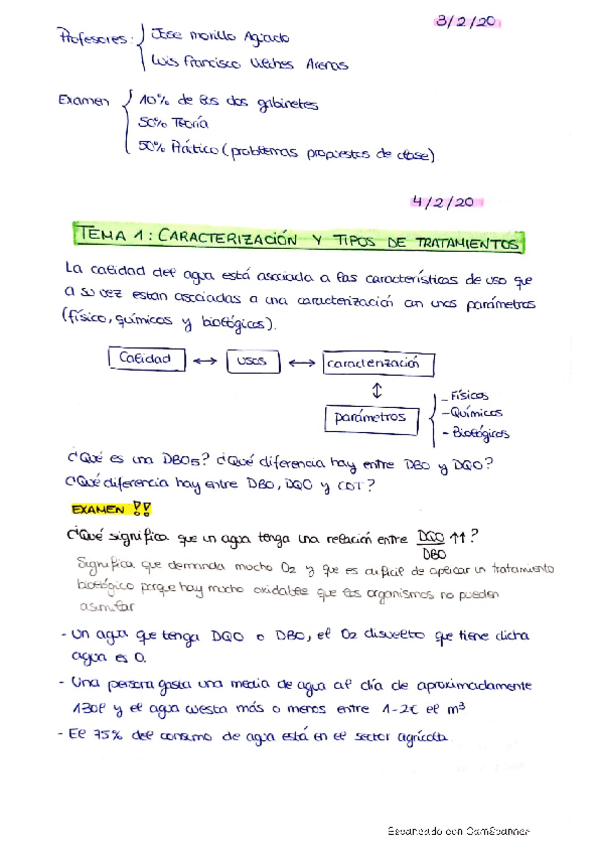 3/2/20
Profesores: Jose Morillo Aguado
Luis Francisco Vilches Arenas
Examen 10% de las dos gabinetes
50% Teoría
50% Prático (problemas propuestos de clase)
4/2/20
TEMA 1: CARACTERIZACIÓN Y TIPOS DE TRATAMIENTOS
La calidad del agua está asociada a las características de uso que
a su vez estan asociadas a una caracterización con unos parámetros
(físico, químicos y biológicos).
Calidad ↔ usos ↔ caracterización
↕
parámetros
- Físicos
- Químicos
- Biológicos
¿Qué es una DBO5? ¿Qué diferencia hay entre DBO y DQO?
¿Qué diferencia hay entre DBO, DQO y COT?
EXAMEN !!
¿Qué significa que un agua tenga una relación entre DQO/DBO ↑↑?
Significa que demanda mucho O2 y que es dificil de aplicar un tratamiento
biológico porque hay mucho oxidable que los organismos no pueden
asimilar
- Un agua que tenga DQO o DBO, el O2 disuelto que tiene dicha
agua es 0.
- Una persona gasta una media de agua al día de aproximadamente
130l y el agua cuesta más o menos entre 1-2€ el m³
- El 75% del consumo de agua está en el sector agrícola.
Escaneado con CamScanner